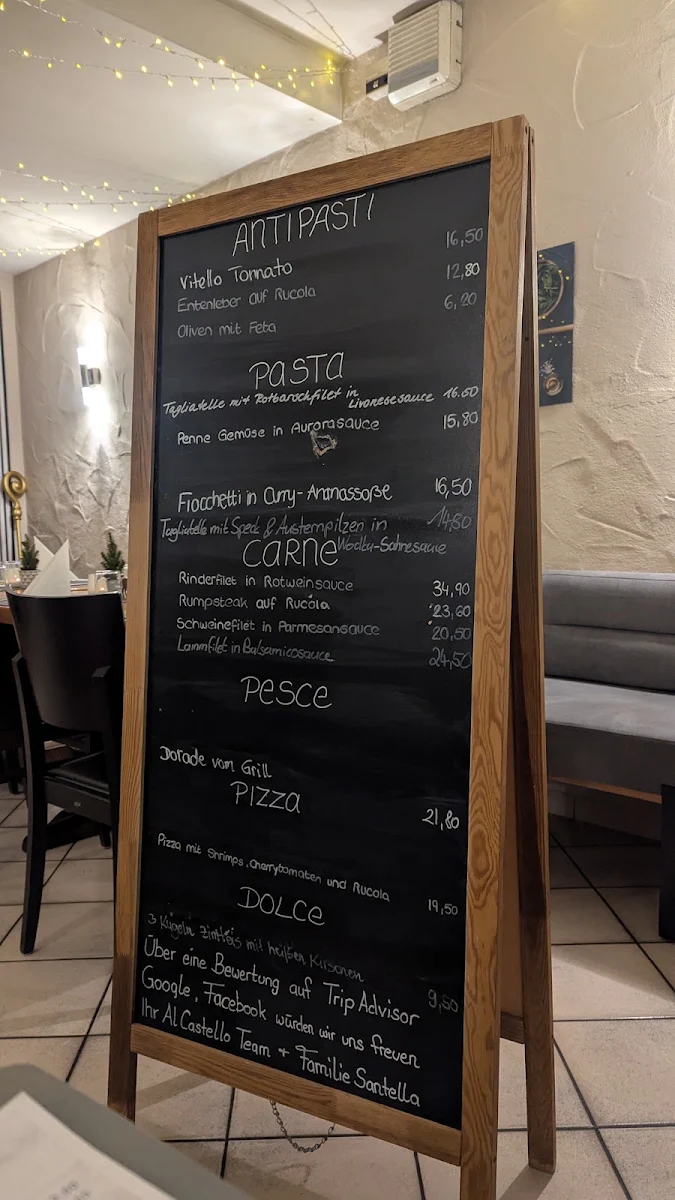 ANTIPASTI
Vitello Tonnato 16,50
Entenleber auf Rucola 12,80
Oliven mit Feta 6,20
PASTA
Tagliatelle mit Rotbarschfilet in
Livornesesauce 16.50
Penne Gemüse in Aurorasauce 15,80
Fiocchetti in Curry-Ananassoße 16,50
Tagliatelle mit Speck & Austernpilzen in 14,50
Wodka-Sahnesauce
CARNE
Rinderfilet in Rotweinsauce 34,90
Rumpsteak auf Rucola 23,60
Schweinefilet in Parmesansauce 20,50
Lammfilet in Balsamicosauce 24,50
PESCE
Dorade vom Grill 21,80
PIZZA
Pizza mit Shrimps, Cherrytomaten und Rucola 19,50
DOLCE
3 Kugeln Zimteis mit heißen Kirschen 9,50
Über eine Bewertung auf Trip Advisor
Google, Facebook würden wir uns freuen
Ihr Al Castello Team + Familie Santella